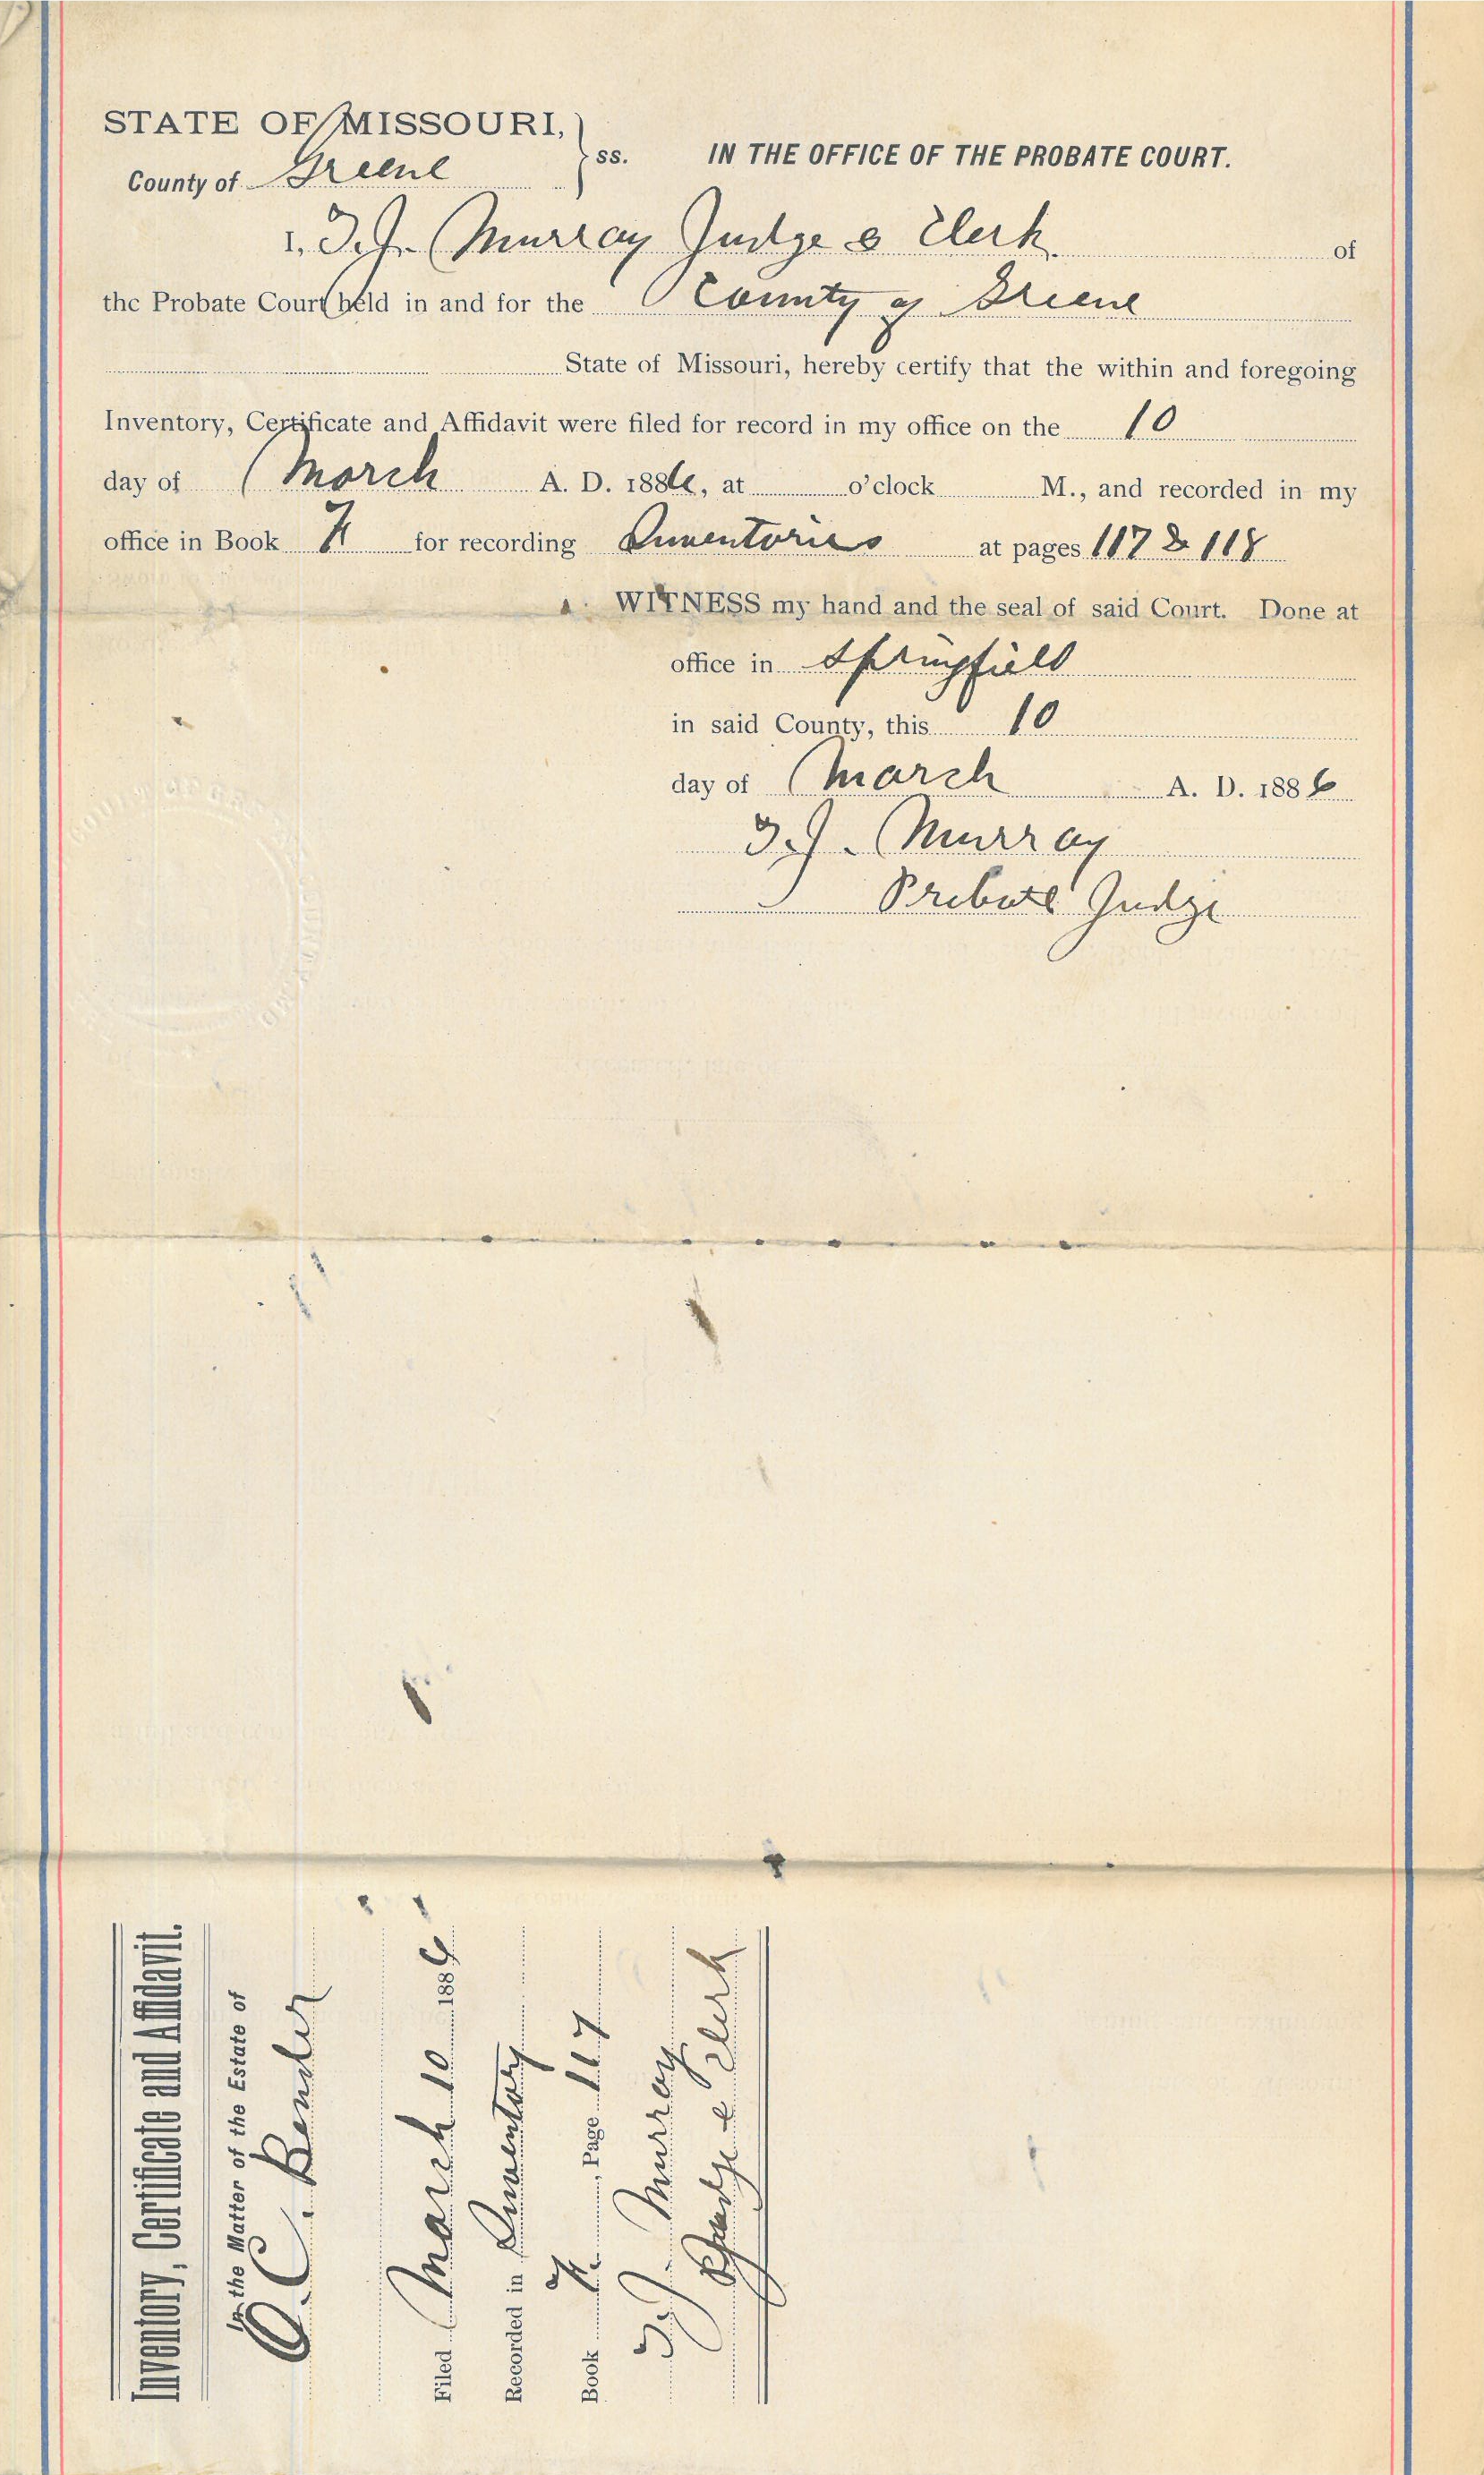 STATE OF MISSOURI,
County of Greene
ss.
IN THE OFFICE OF THE PROBATE COURT.
I, T. J. Murray Judge & Clerk of
the Probate Court held in and for the County of Greene
State of Missouri, hereby certify that the within and foregoing
Inventory, Certificate and Affidavit were filed for record in my office on the 10
day of March A. D. 1886, at o'clock M., and recorded in my
office in Book for recording Inventories at pages 117 & 118
WITNESS my hand and the seal of said Court. Done at
office in Springfield
in said County, this 10
day of March A. D. 1886
T. J. Murray
Probate Judge
Inventory, Certificate and Affidavit.
In the Matter of the Estate of
O. C. Bender
Filed March 10 1886
Recorded in Inventory
Book , Page 117
T. J. Murray
Judge & Clerk